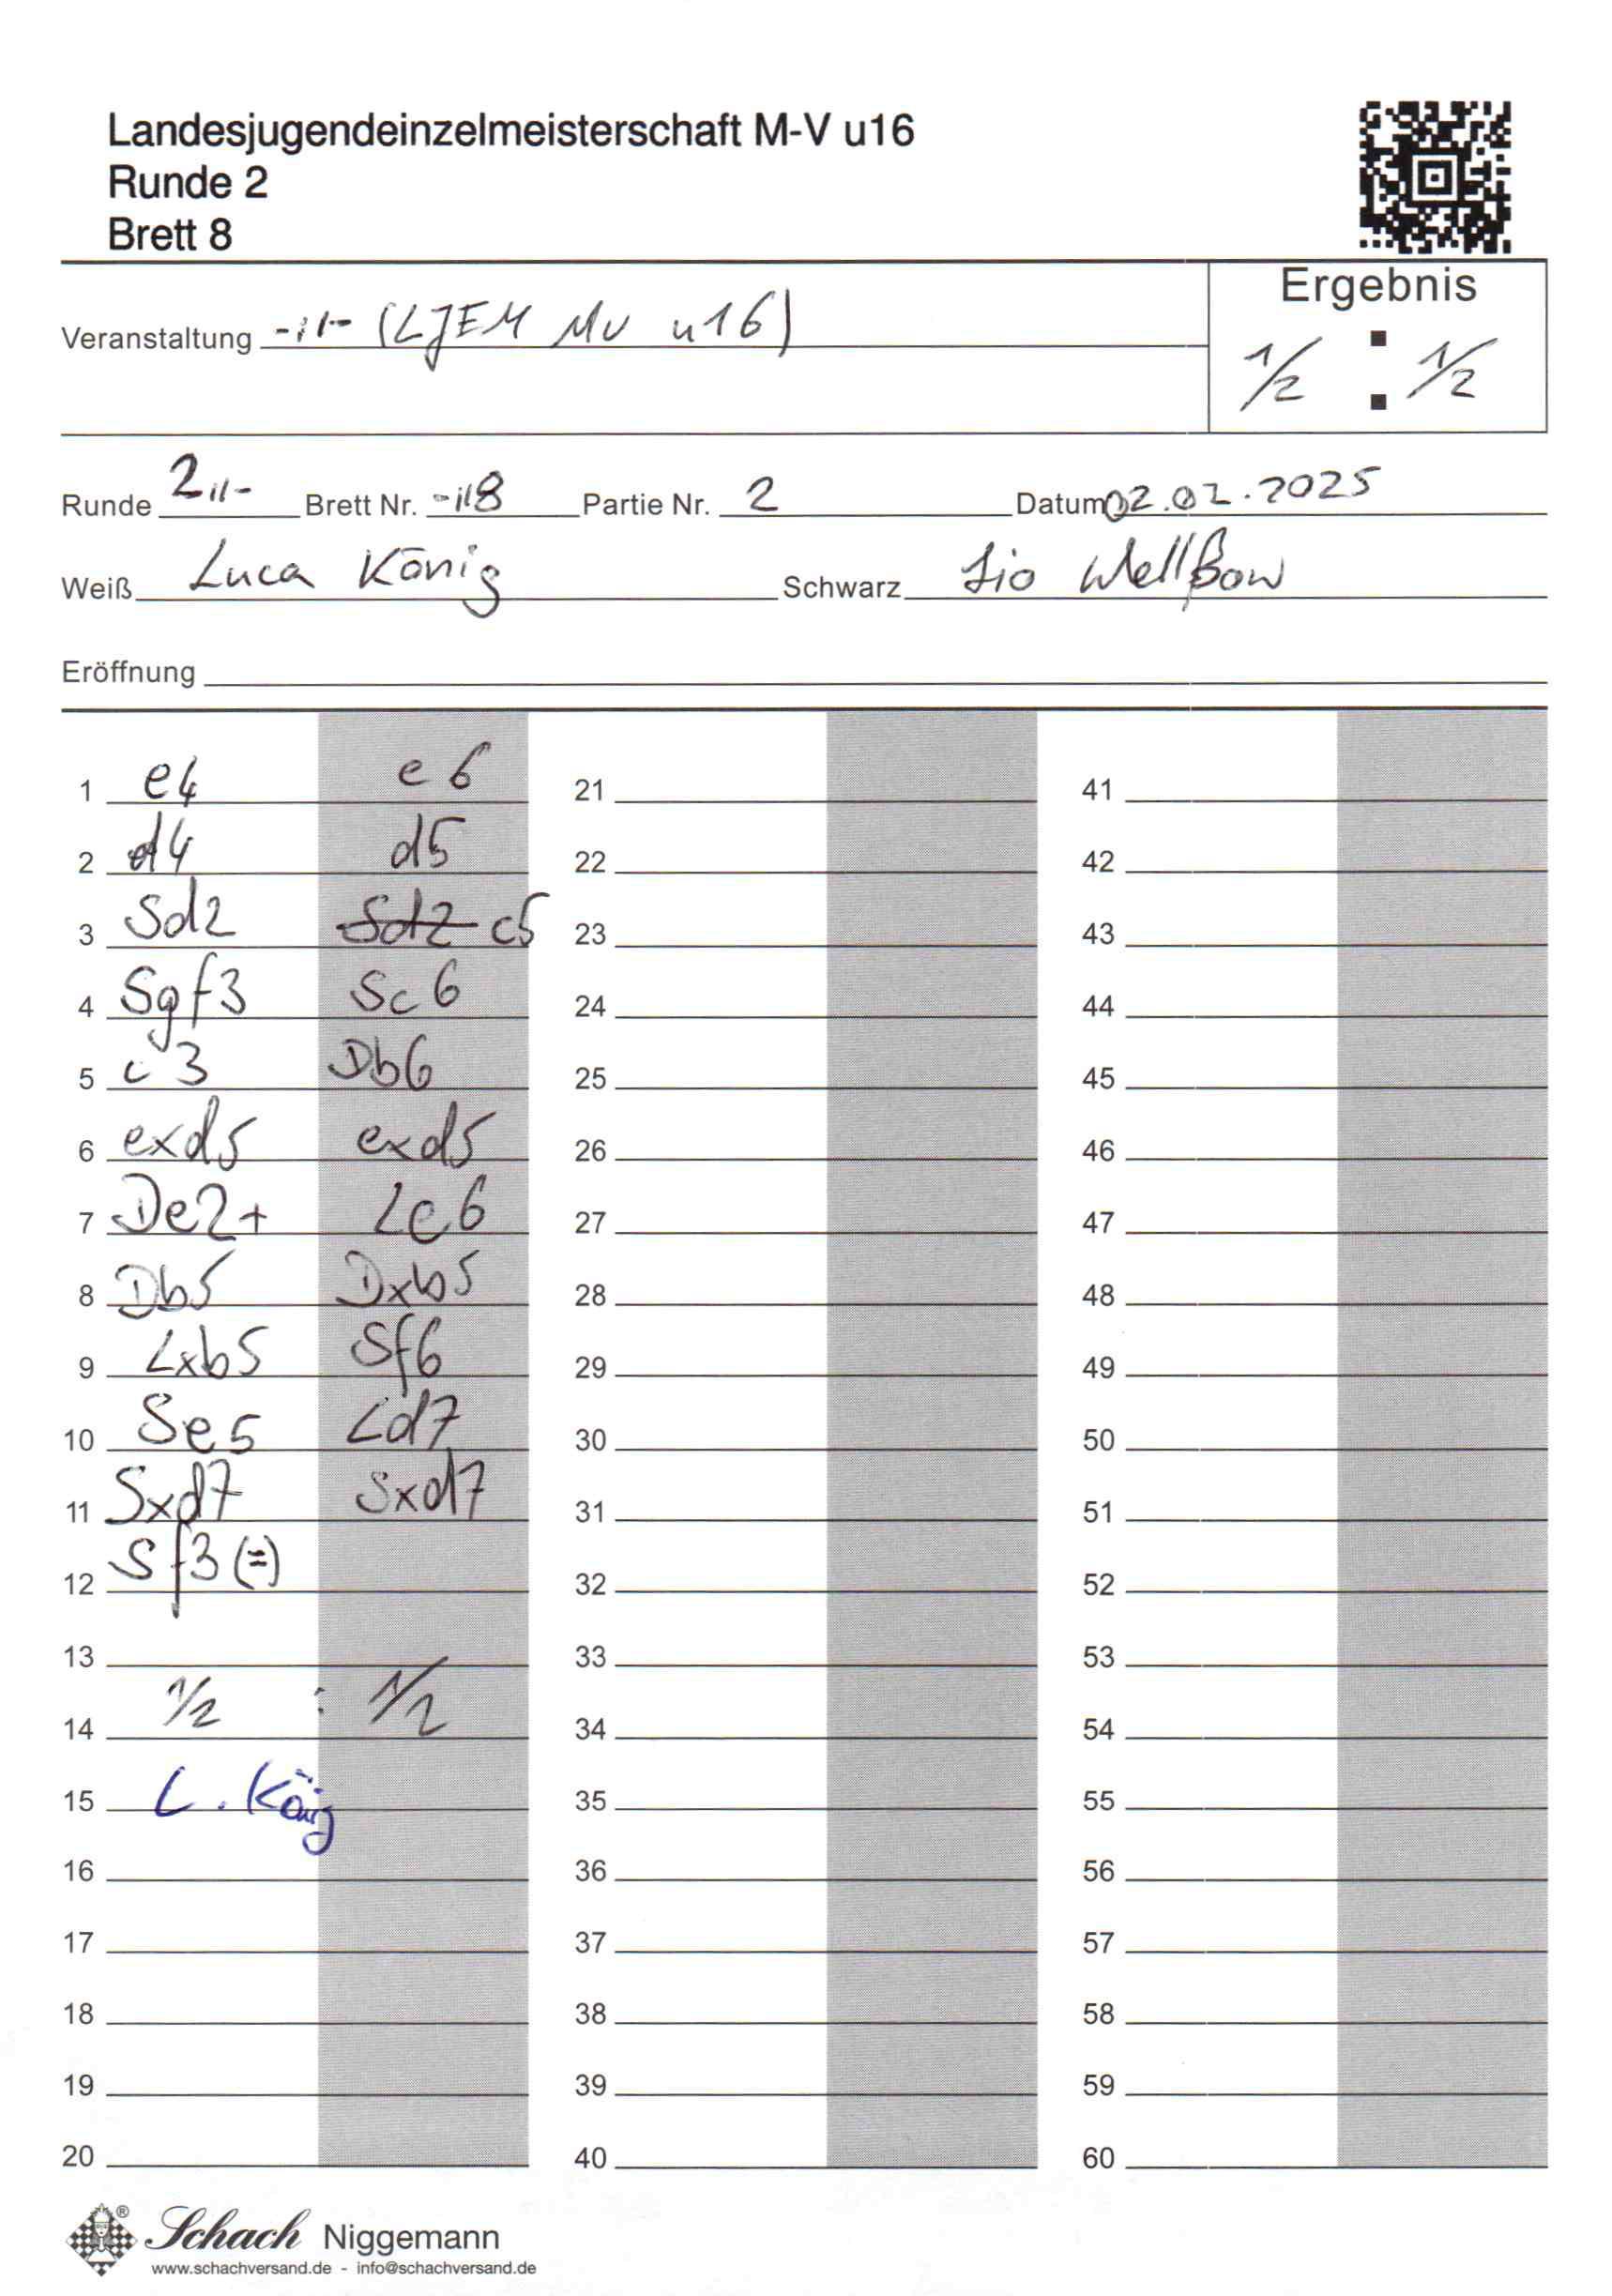 Landesjugendeinzelmeisterschaft M-V u16
Runde 2
Brett 8
Ergebnis
Veranstaltung -"- (LJEM MV u16)
1/2 : 1/2
Runde 2 -"- Brett Nr. -"- 8 Partie Nr. 2 Datum 02.02.2025
Weiß Luca König Schwarz Lio Wellßow
Eröffnung
1 e4 e6 21 41
2 d4 d5 22 42
3 Sd2 Sd2 c5 23 43
4 Sgf3 Sc6 24 44
5 c3 Db6 25 45
6 exd5 exd5 26 46
7 De2+ Le6 27 47
8 Db5 Dxb5 28 48
9 Lxb5 Sf6 29 49
10 Se5 Ld7 30 50
11 Sxd7 Sxd7 31 51
12 Sf3 (=) 32 52
13 33 53
14 1/2 : 1/2 34 54
15 L. König 35 55
16 36 56
17 37 57
18 38 58
19 39 59
20 40 60
Schach Niggemann
www.schachversand.de - info@schachversand.de